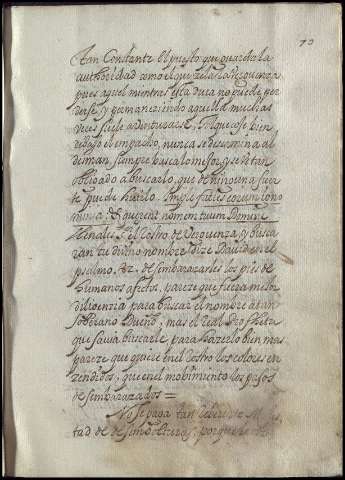 73
tan Constante el puesto que guarda la
authoridad como el que zela la verguenza
pues aquel mientras esta dura no puede per
derse, y permaneziendo aquella muchas
vezes suele aventurarse, Alque case bien
el engaño, nunca se encamina al
desman, siempre busca lo mejor, y se da tan
obligado a buscarlo, que de ninguna suer
te puede huirlo. Imple facies eorum igno
minia: & querent nomen tuum Domine
llenales el rostro de verguenza y busca
ran tu divino nombre, dize David en el
psalmo. 82. desembarazarles los pies de
humanos afectos, pareze que fuera mejor
diligenzia para buscar el nombre a tan
soberano Dueño; mas el Real Propheta
que savia buscarle para hazerlo bien mas
pareze que quiere en el rostro los colores en
zendidos, que en el mobimiento los pasos
desembarazados =
No se paga tan
tad de desemvolturas, porque